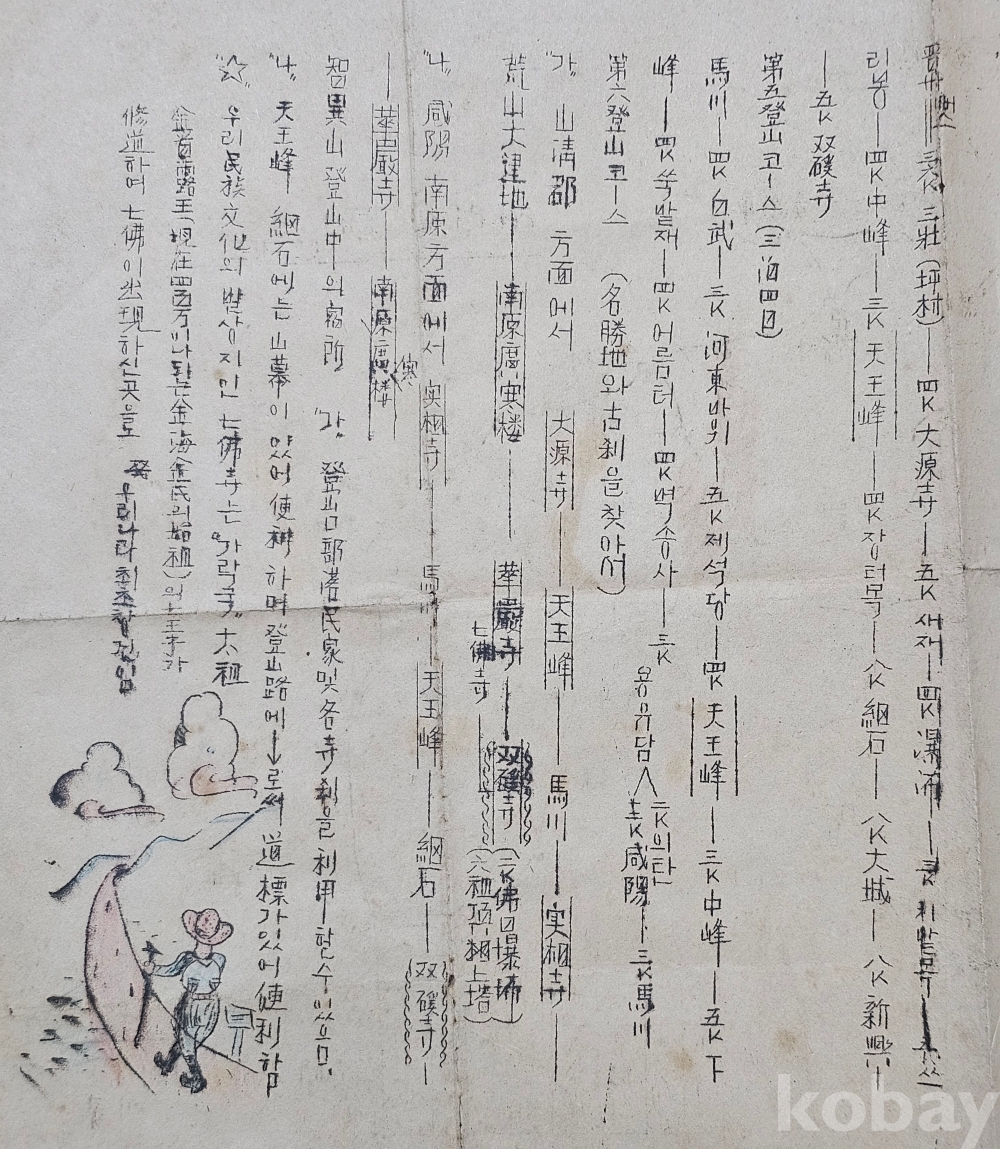 晋州뻐스――三K 三壯(坪村)――四K 大源寺――五K 새재――四K 瀑布――
리봉――四K 中峰――三K 天王峰――四K 장터목――八K 細石――八K 大城――八K 新興――
――五K 双磎寺
第五登山코ー스(三泊四日)
馬川――四K 白武――三K 河東바위――五K 제석당――四K 天王峰――三K 中峰――五K 下
峰――四K 쑥밭재――四K 어름터――四K 벽송사――三K 용유담 二K의탄 咸陽――三K馬川
第六登山코ー스 (名勝地와 古刹을 찾아서)
"가" 山淸郡 方面에서 大源寺――天王峰――馬川――実相寺――
荒山大捷地――南原廣寒楼――華嚴寺――双磎寺(二K佛日瀑布
七佛寺 六祖頂相上塔)
"나" 咸陽 南原方面에서 実相寺――馬川――天王峰――細石――双磎寺――
――華嚴寺――南原廣楼
寒
智異山登山中의宿所 "가" 登山口部落民家및各寺刹을利用할수있음.
"나" 天王峰 細石에는山幕이있어便利하며登山路에↓로써道標가있어便利함
"☆" 우리民族文化의발상지인七佛寺는"가락국"太祖
金首露王(現在四百万이나되는金海金氏의始祖)의七王子가
修道하며七佛이出現하신곳으로 우리나라최초찰전임
kobay